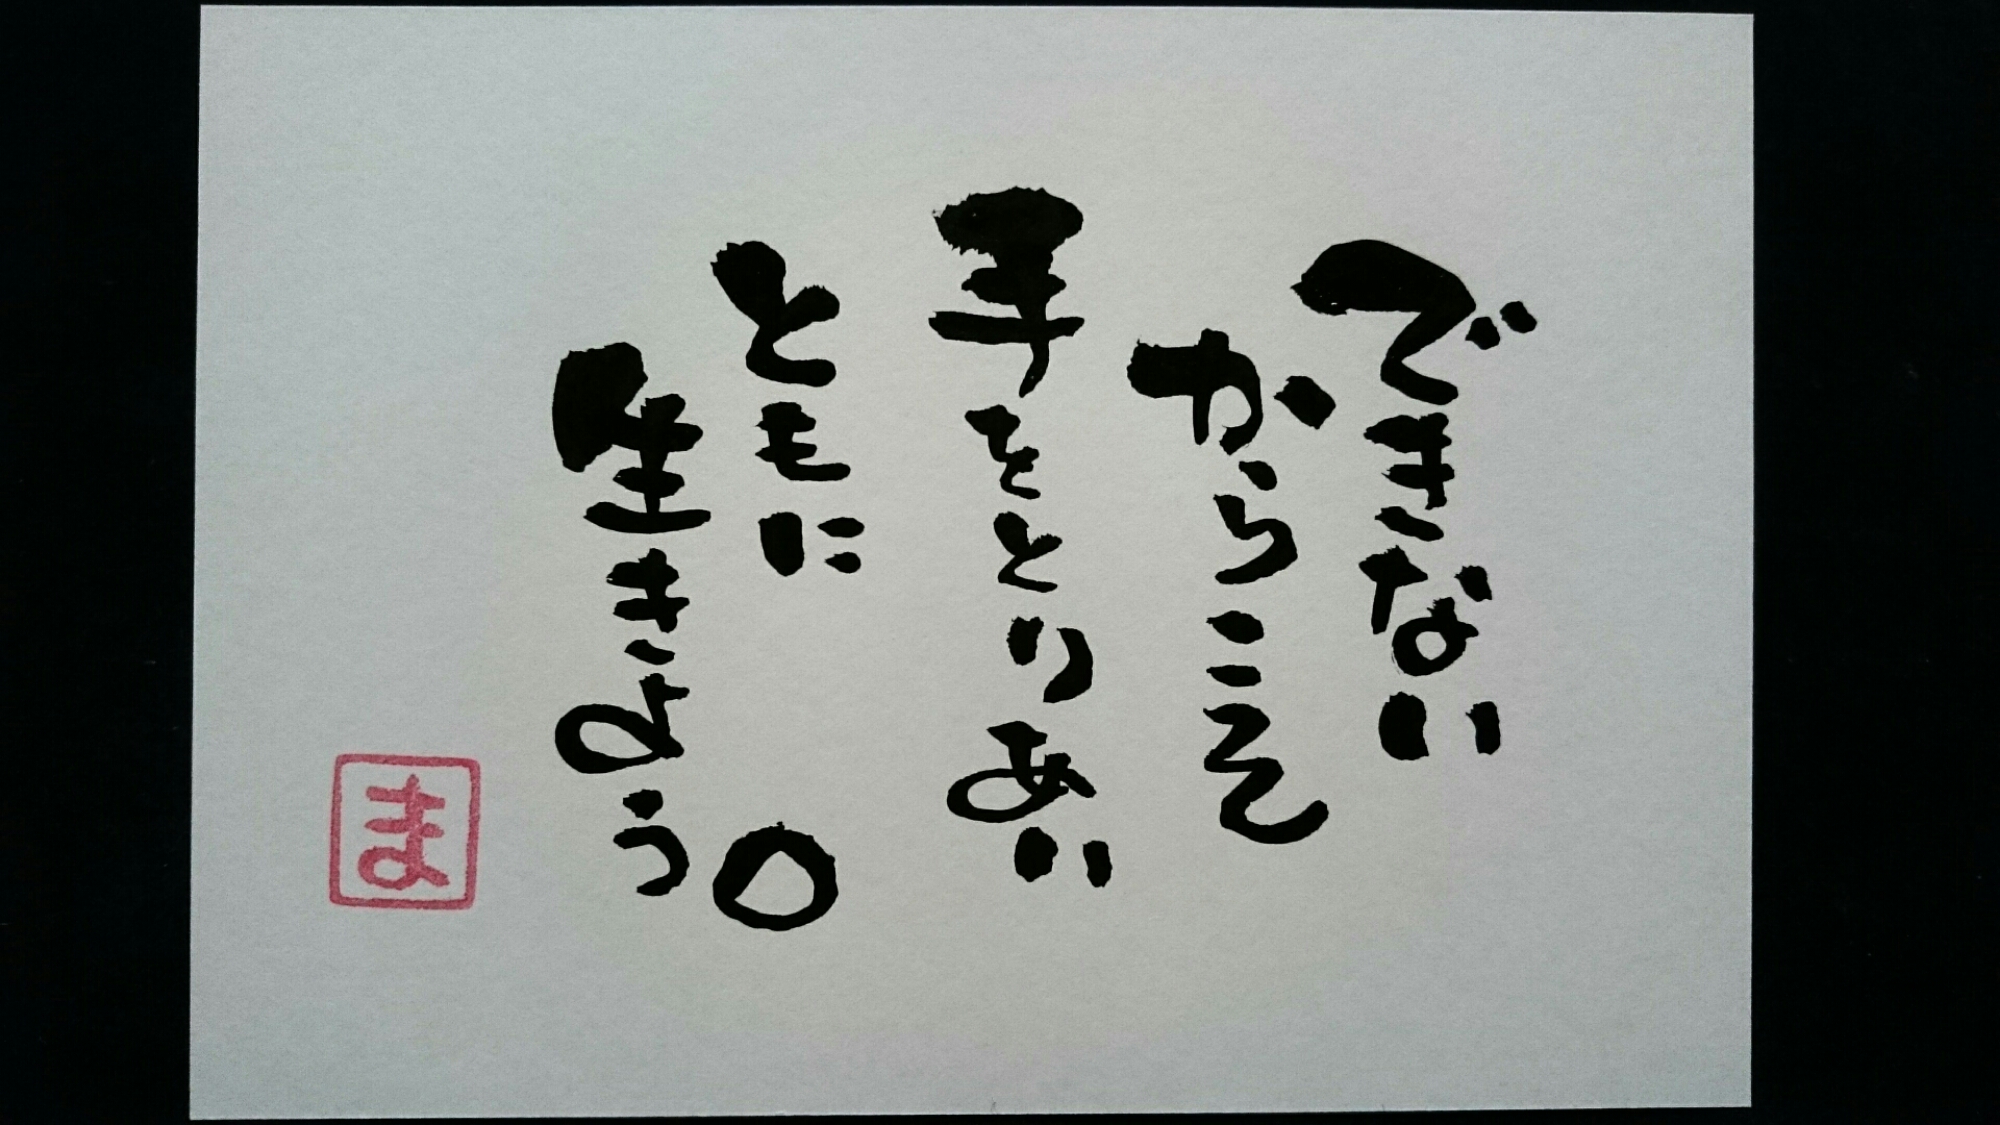 できない
からこそ
手をとりあい
ともに
生きよう。
ま